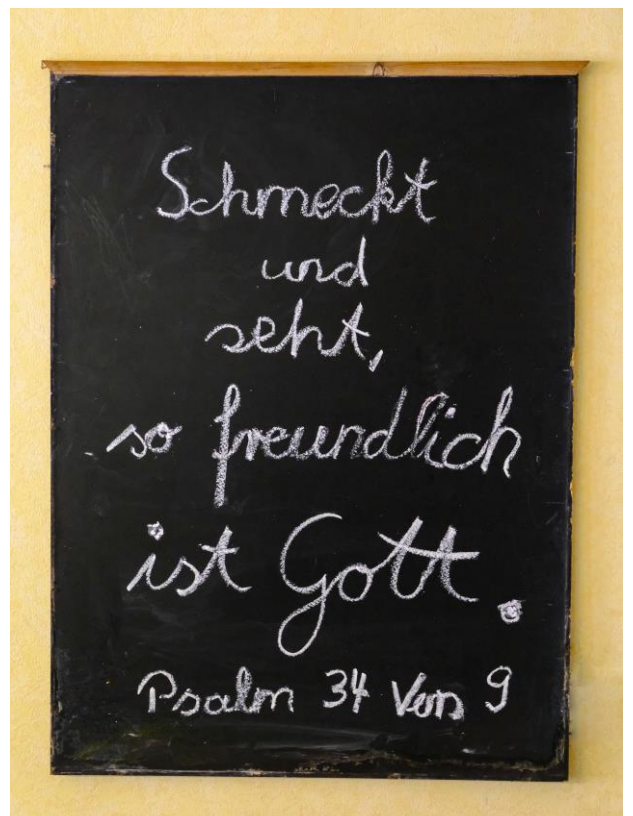 Schmeckt
und
seht,
so freundlich
ist Gott.
Psalm 34 Vers 9